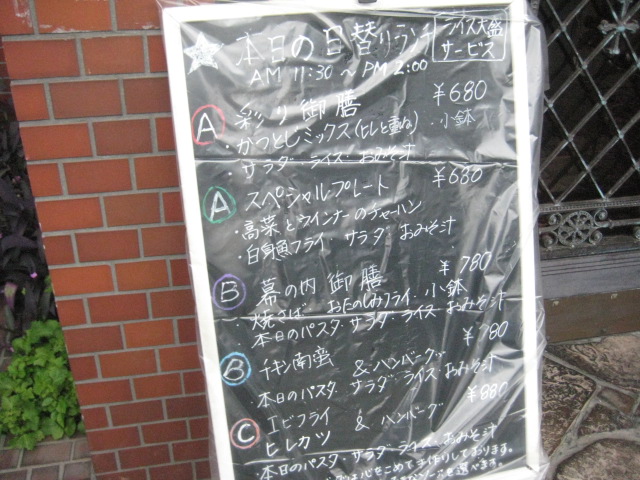 本日の日替りランチ
ライス大盛
サービス
AM 11:30 ~ PM 2:00
A 彩り御膳 ¥680
・かつとじミックス(ヒレと重ね) 小鉢
・サラダ・ライス・おみそ汁
A スペシャルプレート ¥680
・高菜とウインナーのチャーハン
・白身魚フライ サラダ おみそ汁
B 幕の内御膳 ¥780
・焼さば おたのしみフライ・小鉢
本日のパスタ・サラダ・ライス・おみそ汁
B チキン南蛮 & ハンバーグ ¥780
本日のパスタ サラダ ライス・おみそ汁
C エビフライ & ハンバーグ ¥880
ヒレカツ
・本日のパスタ・サラダ・ライス・おみそ汁
グは心をこめて手作りしております。
を選べます。